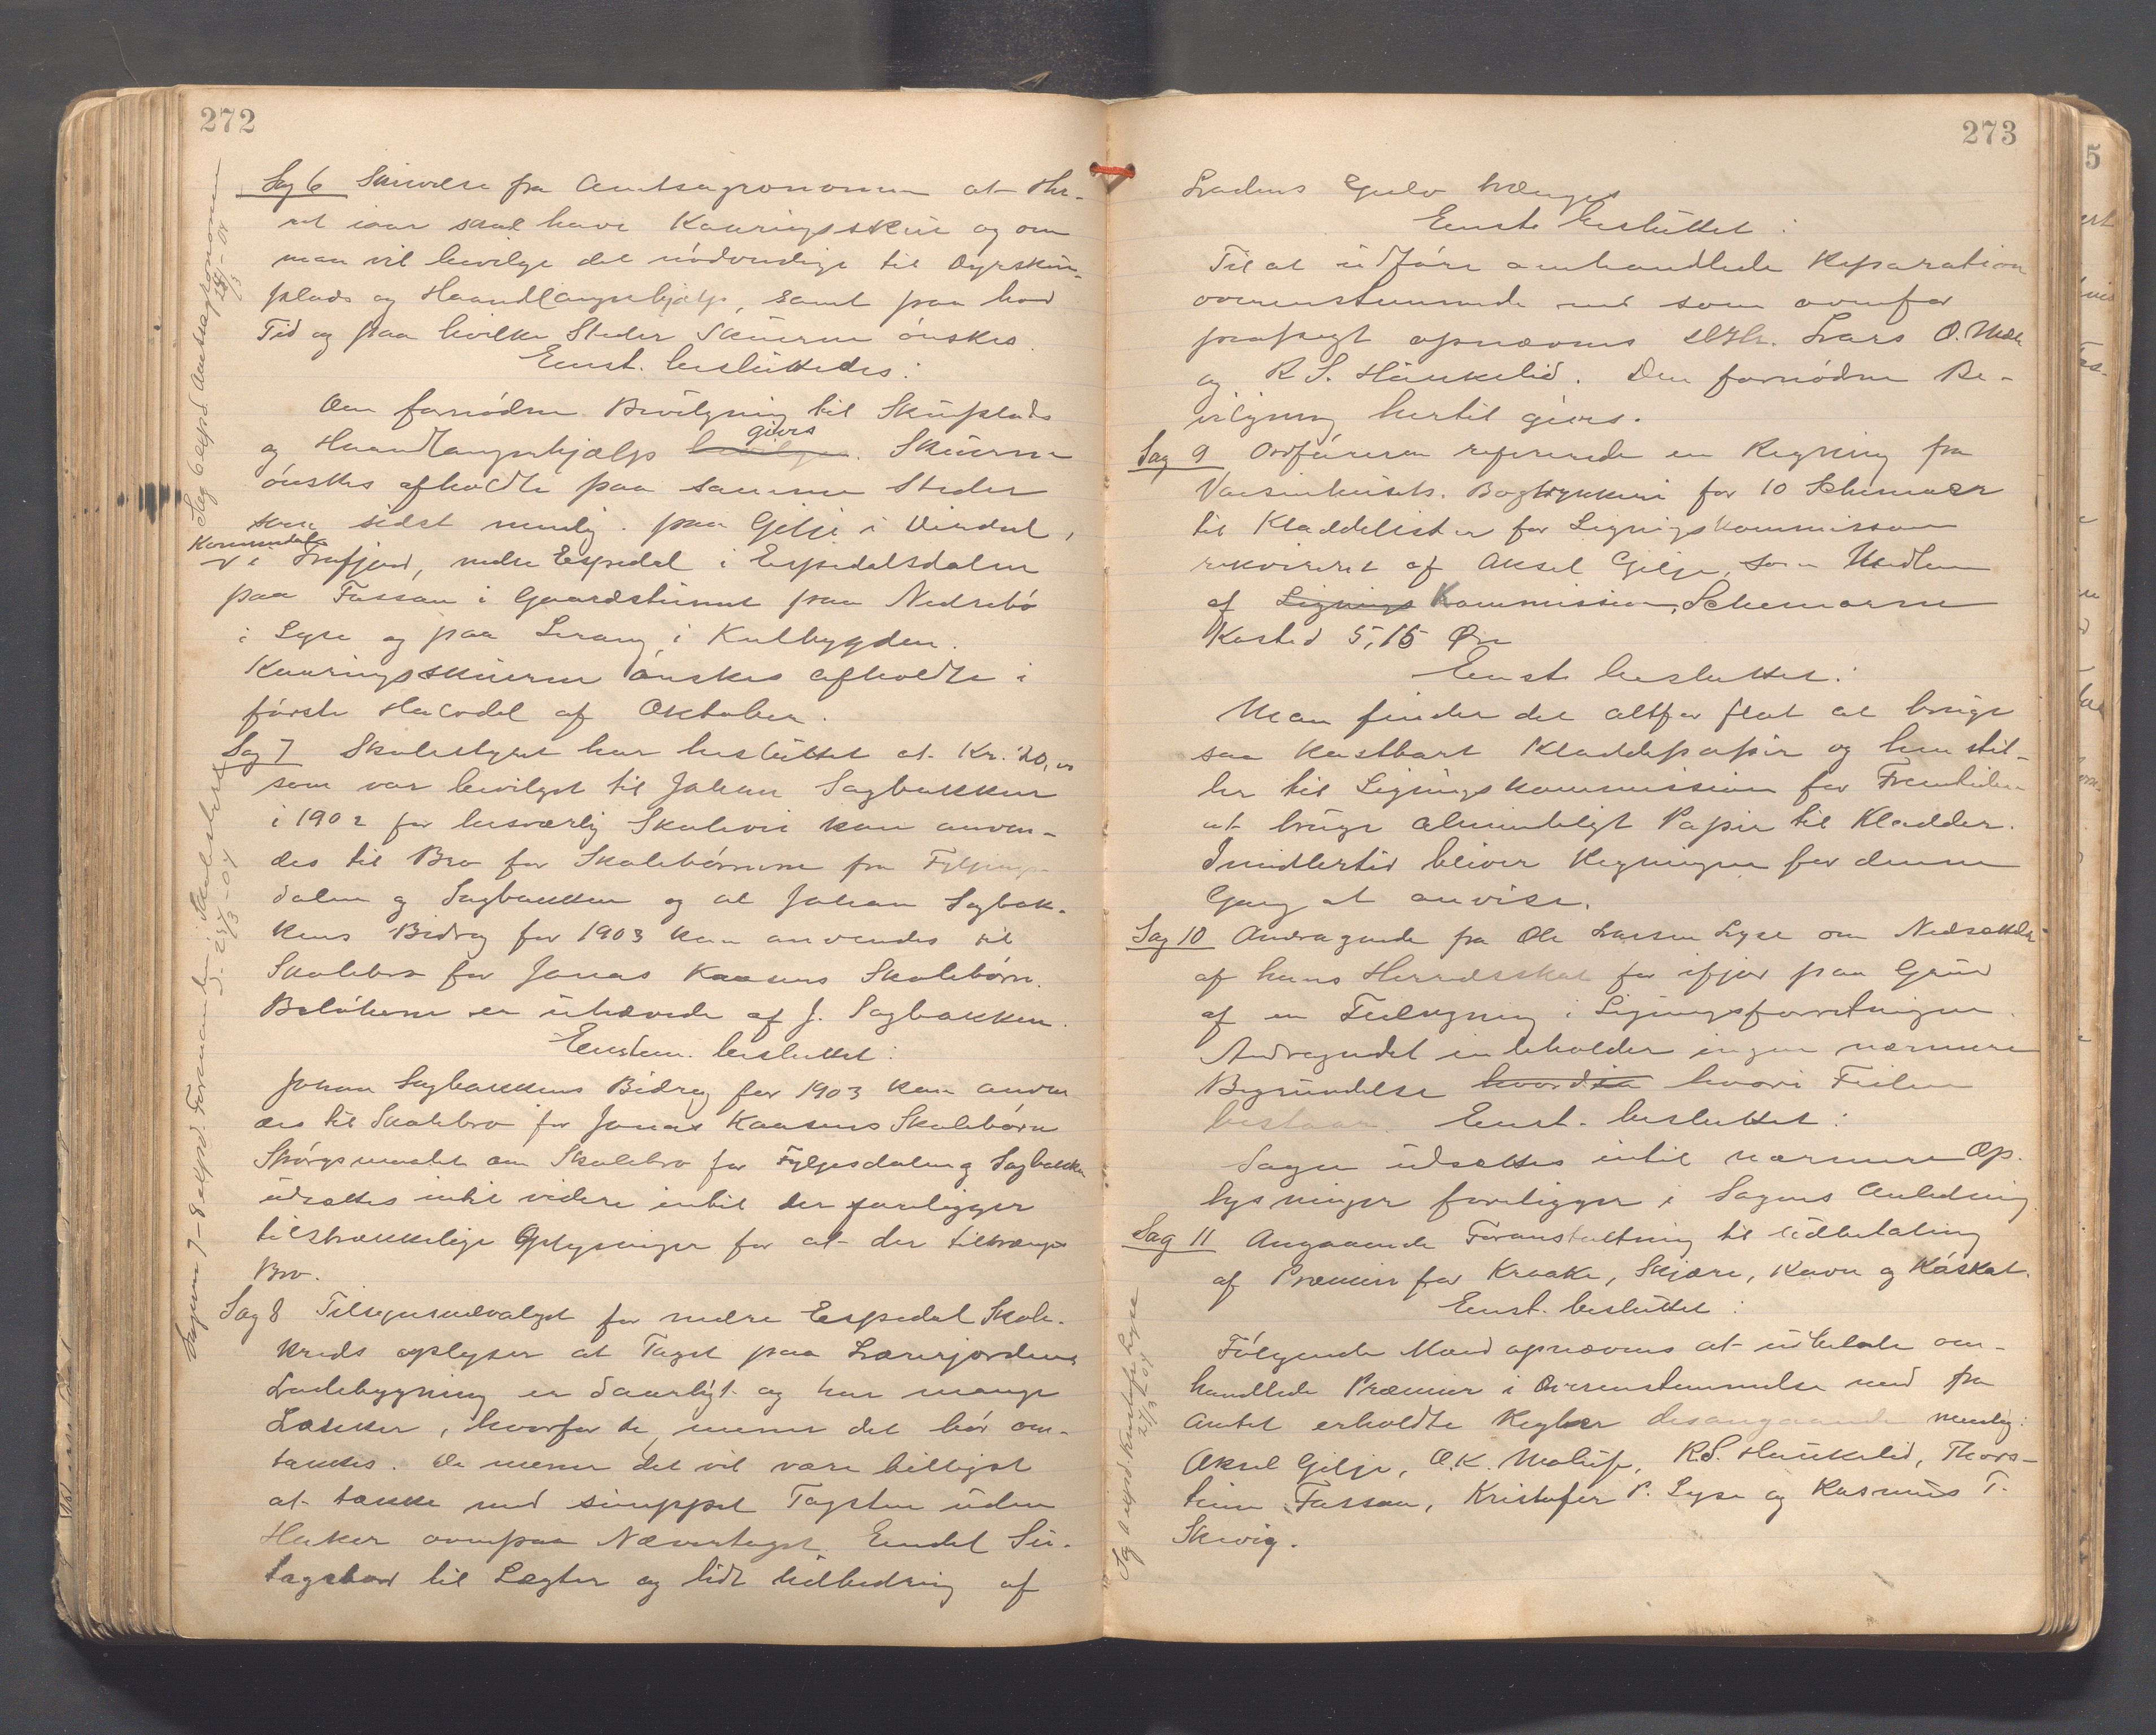 272
Sag 6 Skrivelse fra Amtsagronomen at Her-
ret iaar skal have Kaaringsskue og om
man vil bevilge det nödvendige til Dyrskue-
plads og Haandlangerhjælp, samt paa hvad
Tid og paa hvilke Steder Skuerne önskes.
Enst. besluttedes:
Den fornödne Bevilgning til Skueplads
og Haandlangerhjælp bevilges gives. Skuerne
önskes afholdte paa samme Steder
som sidst nemlig: paa Gilje i Dirdal,
i Frafjord, nedre Espedal i Espedalsdalen
paa Fossan i Gaardstunet paa Nedrebö
i Lyse og paa Lerang i Kolbygden.
Kaaringsskuerne önskes afholdte i
förste Halvdel af Oktober.
Sag 7 Skolestyret har besluttet at Kr. 20,00
som var bevilget til Johan Sagbakken
i 1902 for besværlig Skolevei kan anven-
des til Bro for Skolebörnene fra Fylgjes-
dalen og Sagbakken og at Johan Sagbak-
kens Bidrag for 1903 kan anvendes til
Skolebro for Jonas Kaasens Skolebörn.
Belöbene er uhævede af J. Sagbakken.
Enstem. besluttet:
Johan Sagbakkens Bidrag for 1903 kan anven-
des til Skolebro for Jonas Kaasens Skolebörn
Spörgsmaalet om Skolebro for Fylgjesdalen og Sagbakken
udsættes indtil videre indtil der foreligger
tilstrækkelige Oplysninger for at der tiltrænges
Bro.
Sag 8 Tilsynsudvalget for nedre Espedal Skole-
kreds oplyser at Taget paa Lærerjordens
Ladebygning er daarligt og har mange
Lækker, hvorfor de mener det bör om-
tækkes. De mener det vil være billigst
at tække med simppel Tagsten uden
Haker ovenpaa Nævertaget. Endel Su-
tagsbord til Lægter og lidt Udbedring af
Sag 6 exped. Amtsagronomen
Sagerne 7-8 exped. Formanden i Skolestyret
273
Ladens Gulv trænges
Enst. besluttet:
Til at udföre omhandlede Reparation
overensstemmende med som ovenfor
opnævnes Lars O. Mæle
og R. S. Haukelid. Den fornödne Be-
vilgning hertil gives.
Sag 9 Ordföreren refererede en Regning fra
Vaisenhusets Bogtrykkeri for 10 Schemaer
til Kladdelister for Ligningskommissionen
rekvireret af Aksel Gilje, som Medlem
af Lignings Kommission, Schemaerne
kosted 5,15 Öre
Enst. besluttet:
Man finder det altfor flot at bruge
saa kostbart Kladdepapir og henstil-
ler til Ligningskommissionen for Fremtiden
at bruge almindeligt Papir til Kladder.
Imidlertid bliver Regningen for denne
Gang at anvise.
Sag 10 Andragende fra Ole Larsen Lyse om Nedsættelse
af hans Herredsskat for ifjor paa Grund
af en Feilregning i Ligningsforretningen.
Andragendet indeholder ingen nærmere
Begrundelse hvordan hvori Feilen
bestaar. Enst. besluttet:
Sagen udsættes indtil nærmere Op-
lysninger foreligger i Sagens Anledning
Sag 11 Angaaende Foranstaltning til Udbetaling
af Præmier for Kraake, Skjære, Ravn og Röskat.
Enst. besluttet:
Fölgende Mænd opnævnes at udbetale om-
handlede Præmier i Overensstemmelse med fra
Amtet erholdte Regler desangaaende nemlig:
Aksel Gilje, O. K. Molaup, R. S. Haukelid, Thors-
tein Fossan, Kristofer P. Lyse og Rasmus T.
Skrvig.
5